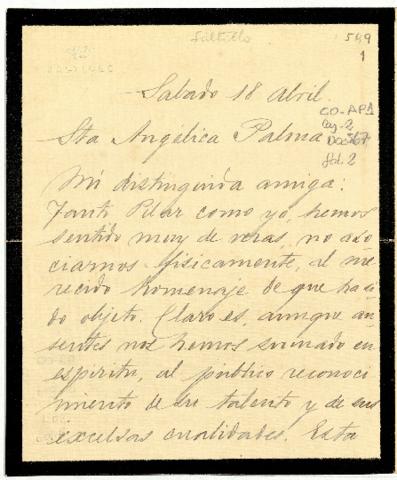 549
1
Sabado 18 Abril.
GO-AP1
Doc 367
fol. 2
Sta Angélica Palma
Mi distinguida amiga:
Tanto Pilar como yo, hemos
sentido muy de veras, no aso
ciarnos físicamente, al me
recido homenaje de que ha si
do objeto. Claro es, aunque au
sentes nos hemos sumado en
espíritu, al público reconoci
miento de su talento y de sus
excelsas cualidades. Esta